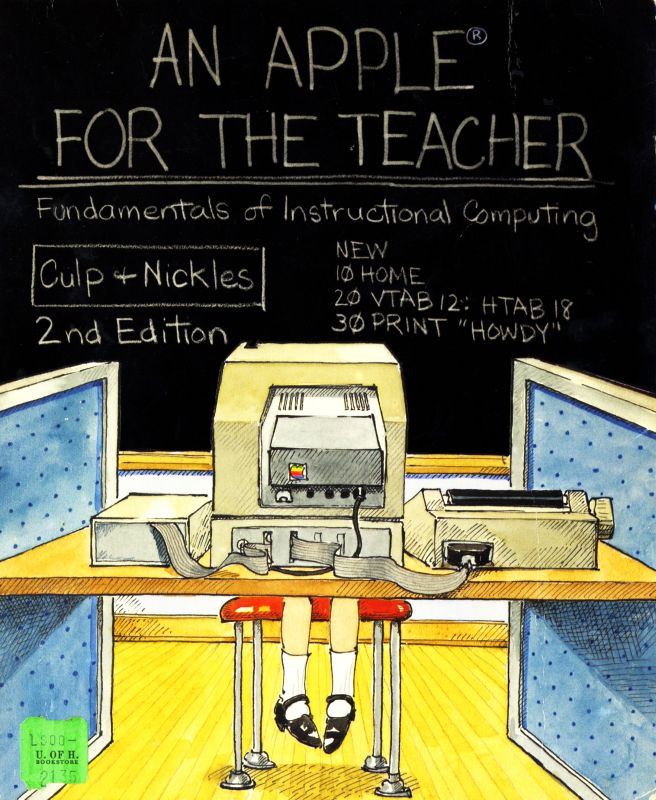 AN APPLE®
FOR THE TEACHER
Fundamentals of Instructional Computing
Culp + Nickles
2nd Edition
NEW
10 HOME
20 VTAB 12: HTAB 18
30 PRINT "HOWDY"
LS00-
U. OF H.
BOOKSTORE
2135